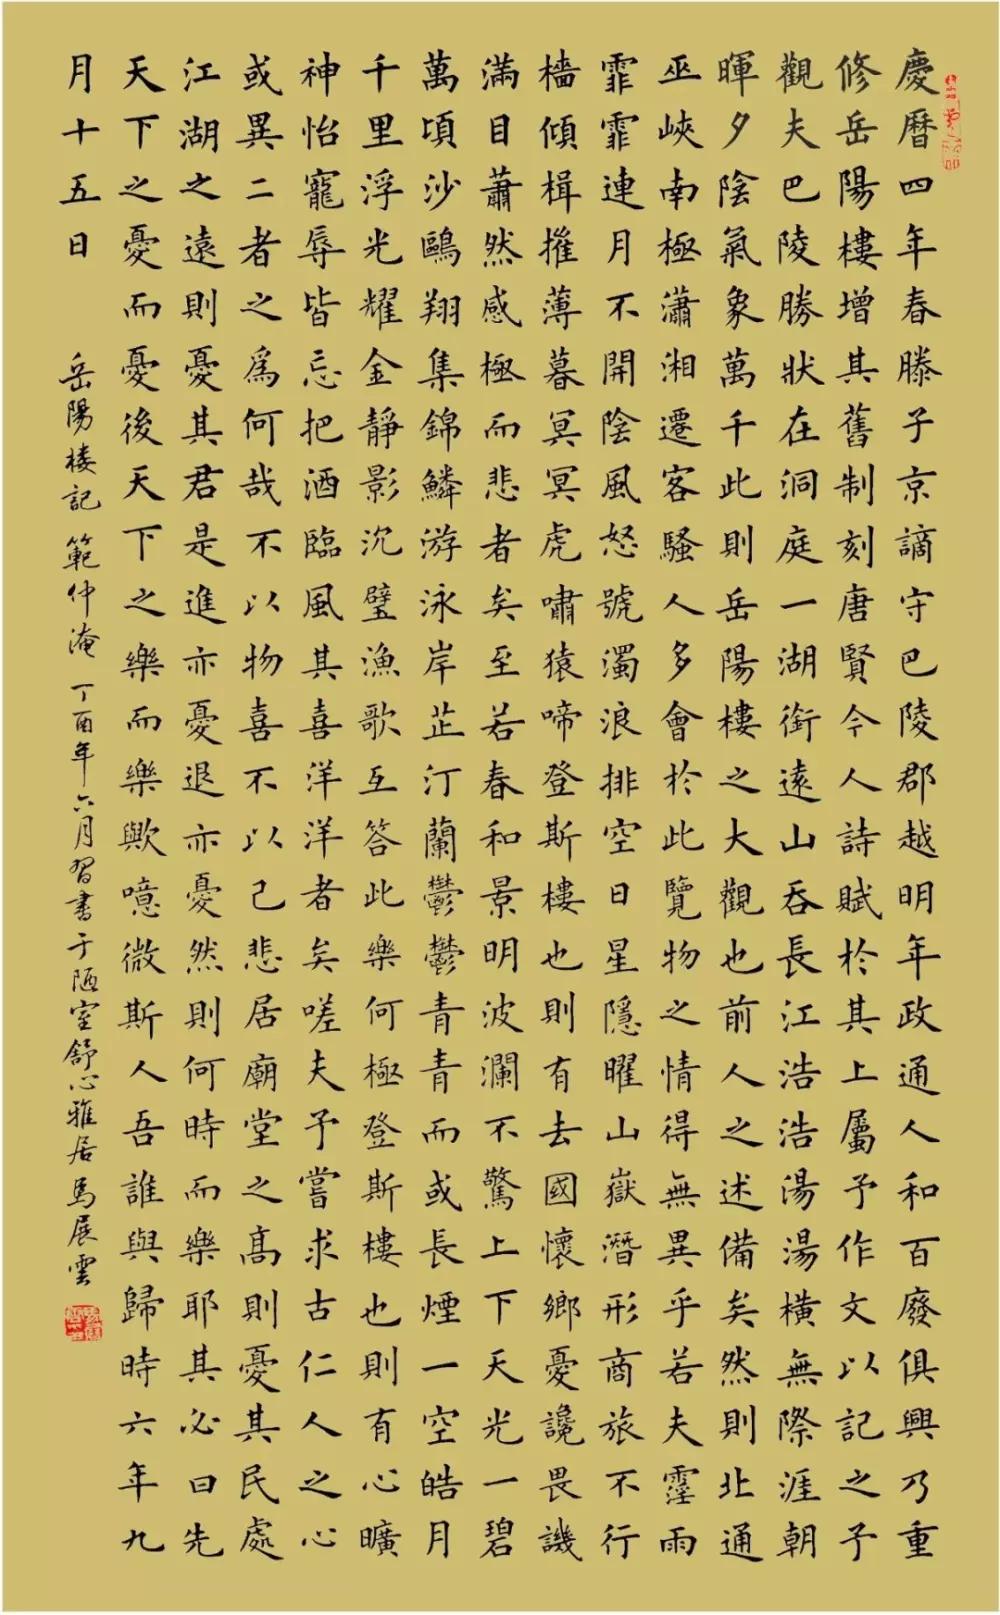 慶曆四年春滕子京謫守巴陵郡越明年政通人和百廢俱興乃重
修岳陽樓增其舊制刻唐賢今人詩賦於其上屬予作文以記之予
觀夫巴陵勝狀在洞庭一湖銜遠山吞長江浩浩湯湯橫無際涯朝
暉夕陰氣象萬千此則岳陽樓之大觀也前人之述備矣然則北通
巫峽南極瀟湘遷客騷人多會於此覽物之情得無異乎若夫霪雨
霏霏連月不開陰風怒號濁浪排空日星隱曜山嶽潛形商旅不行
檣傾楫摧薄暮冥冥虎嘯猿啼登斯樓也則有去國懷鄉憂讒畏譏
滿目蕭然感極而悲者矣至若春和景明波瀾不驚上下天光一碧
萬頃沙鷗翔集錦鱗游泳岸芷汀蘭鬱鬱青青而或長煙一空皓月
千里浮光耀金靜影沉璧漁歌互答此樂何極登斯樓也則有心曠
神怡寵辱皆忘把酒臨風其喜洋洋者矣嗟夫予嘗求古仁人之心
或異二者之為何哉不以物喜不以己悲居廟堂之高則憂其民處
江湖之遠則憂其君是進亦憂退亦憂然則何時而樂耶其必曰先
天下之憂而憂後天下之樂而樂歟噫微斯人吾誰與歸時六年九
月十五日 岳陽楼記 範仲淹 丁酉年六月習書于陋室舒心雅居馬展雲